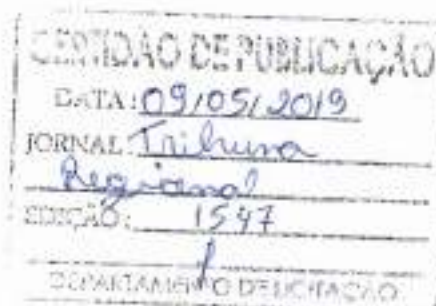 CERTIDÃO DE PUBLICAÇÃO
DATA: 09/05/2019
JORNAL: Tribuna
Regional
EDIÇÃO: 1547
DEPARTAMENTO DE LICITAÇÃO